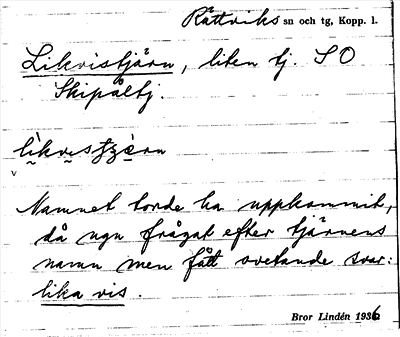 Rättviks sn och tg, Kopp. l.
Likvistjärn, liten tj. SO
Skipåltj.
v
Namnet torde ha uppkommit,
då ngn frågat efter tjärnens
namn men fått svetande svar:
lika vis.
Bror Lindén 1936